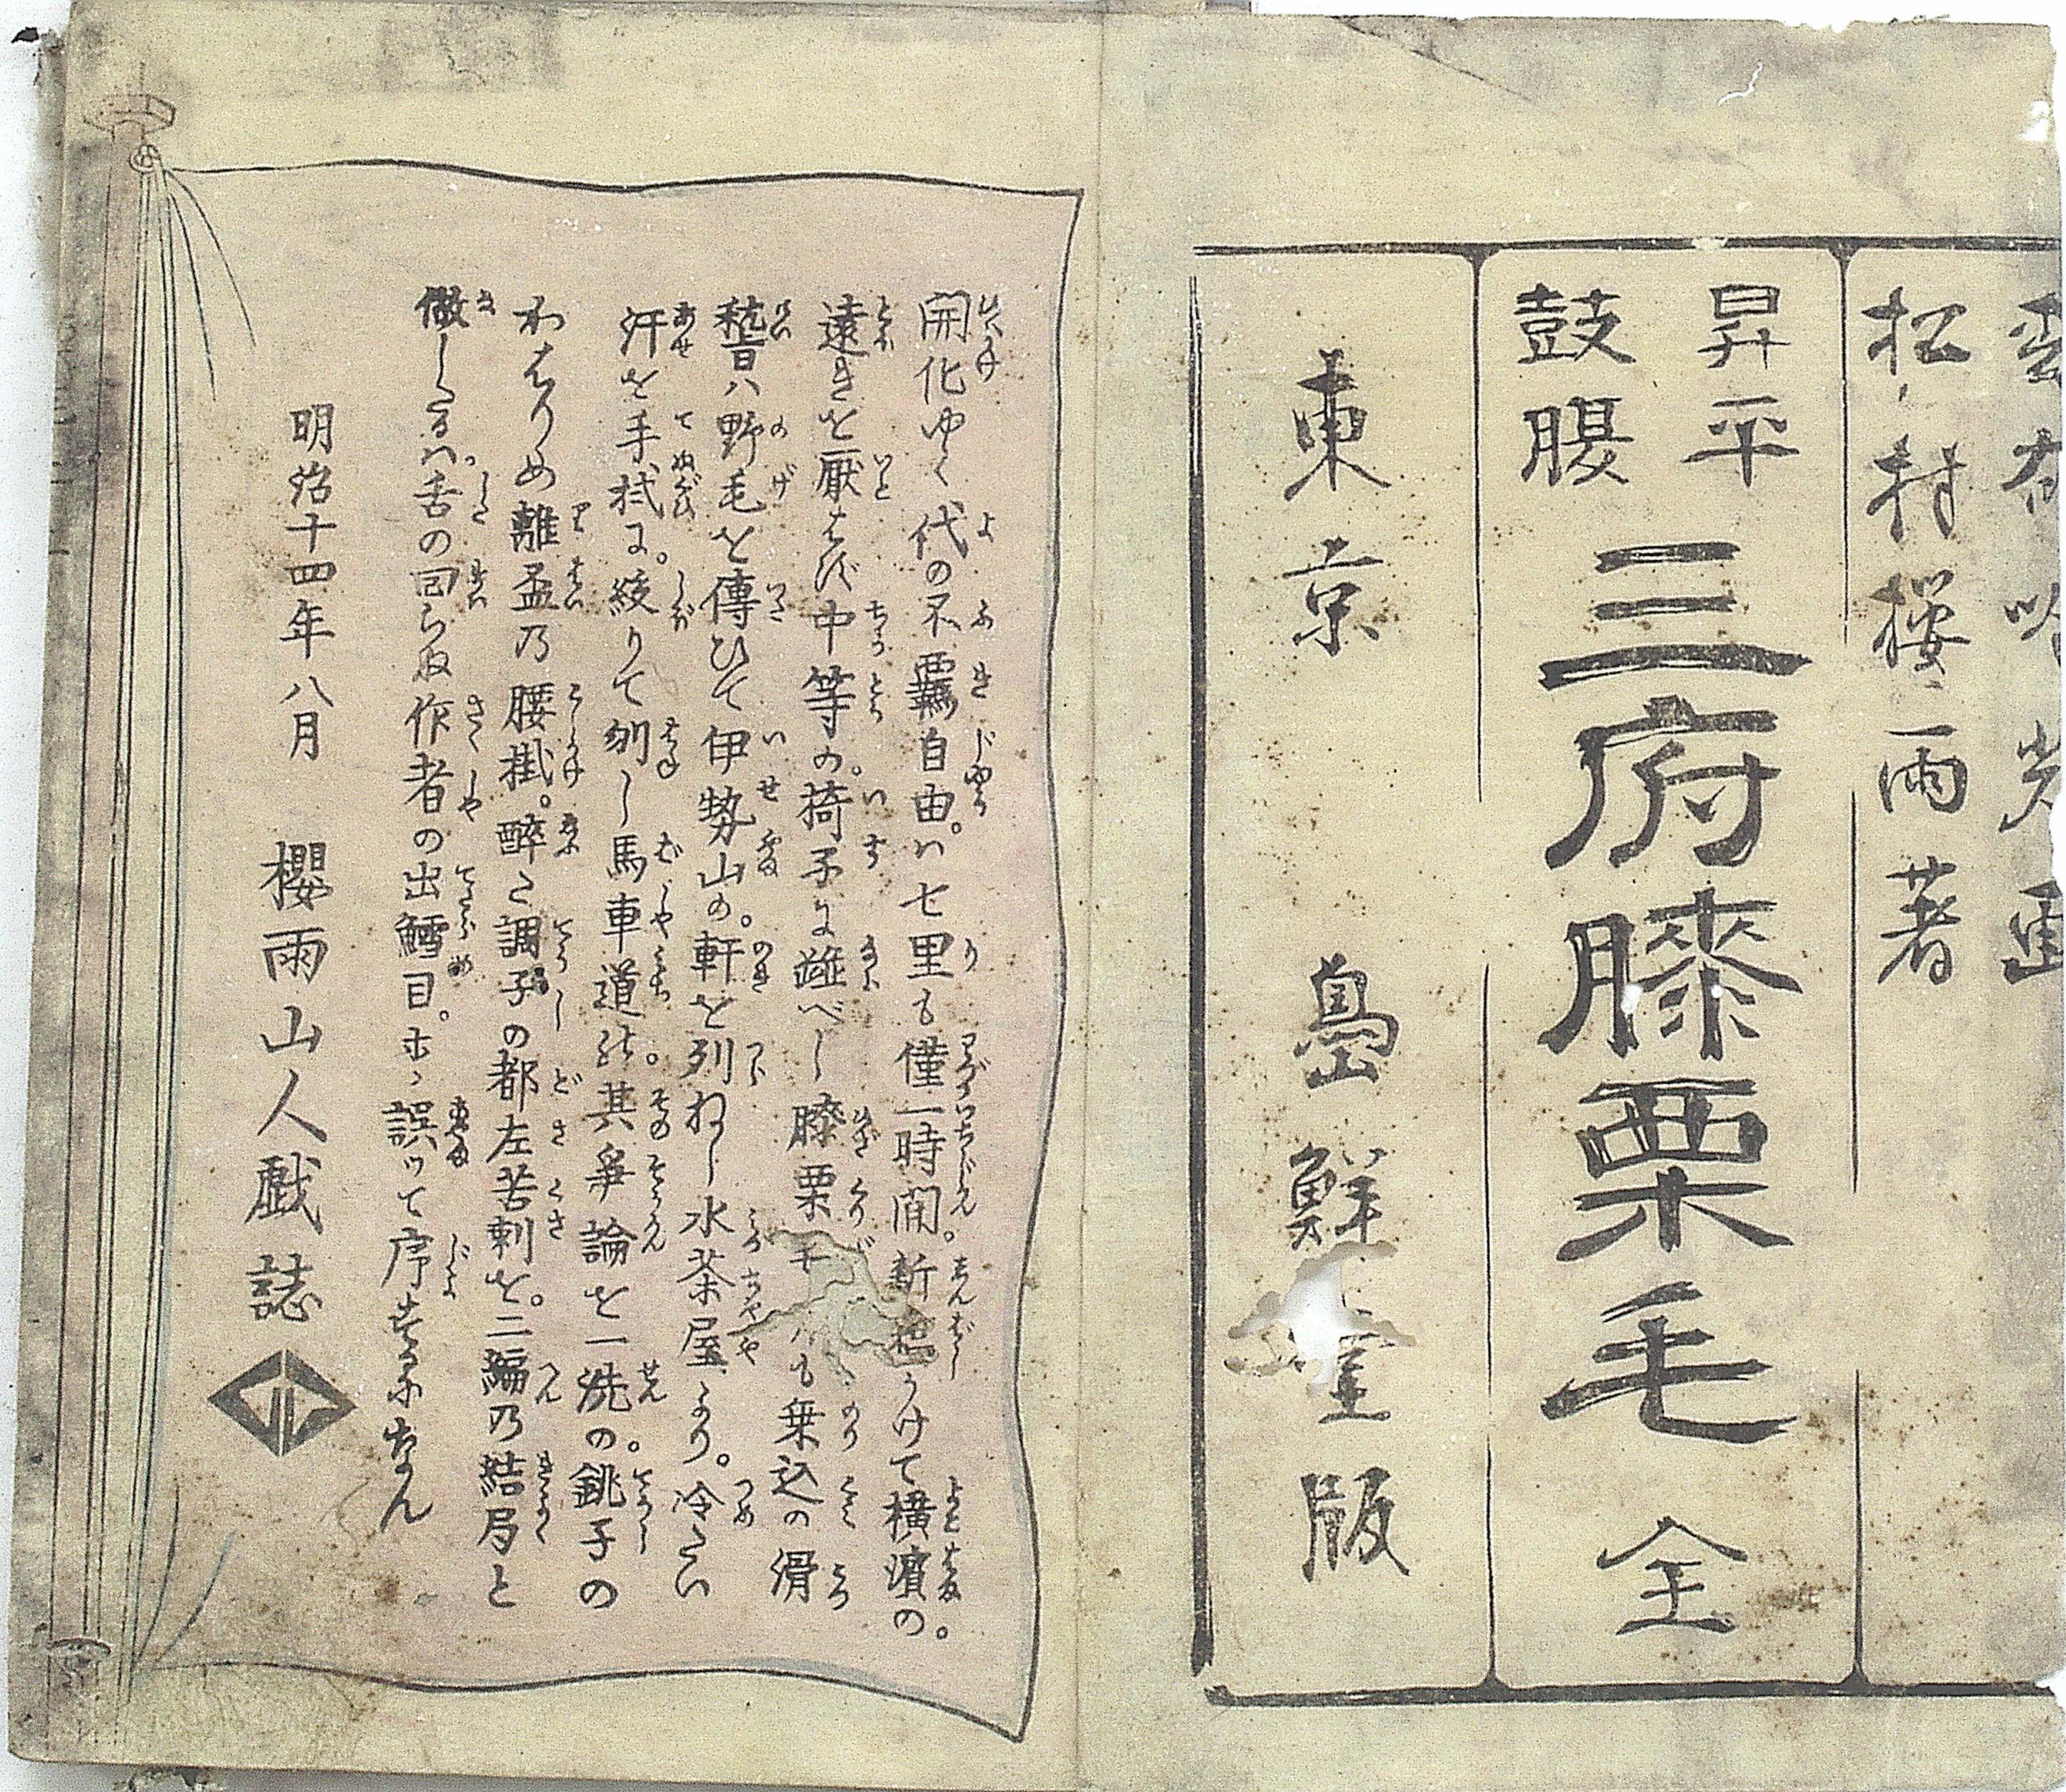 松村櫻雨著
昇平
鼓腹
三府膝栗毛 全
東京 島鮮堂版
開化ゆく代の不羈自由。ハ七里も僅一時間。新橋うけて横濱の。
遠きを厭はず中等の。椅子に雙べし膝栗毛 も乗込の滑
稽ハ野毛を傳ひて伊勢山の。軒を列ねし水茶屋より。冷たい
汗を手拭に。絞りて刎し馬車道の。其爭論を一洗の。銚子の
かはりめ離盃乃腰掛。醉た調子の都々左苦刺を。二編乃結局と
做したるハ。舌の回らぬ作者の出鱈目。ホヽ誤ッて序するになん
明治十四年八月 櫻雨山人戯誌